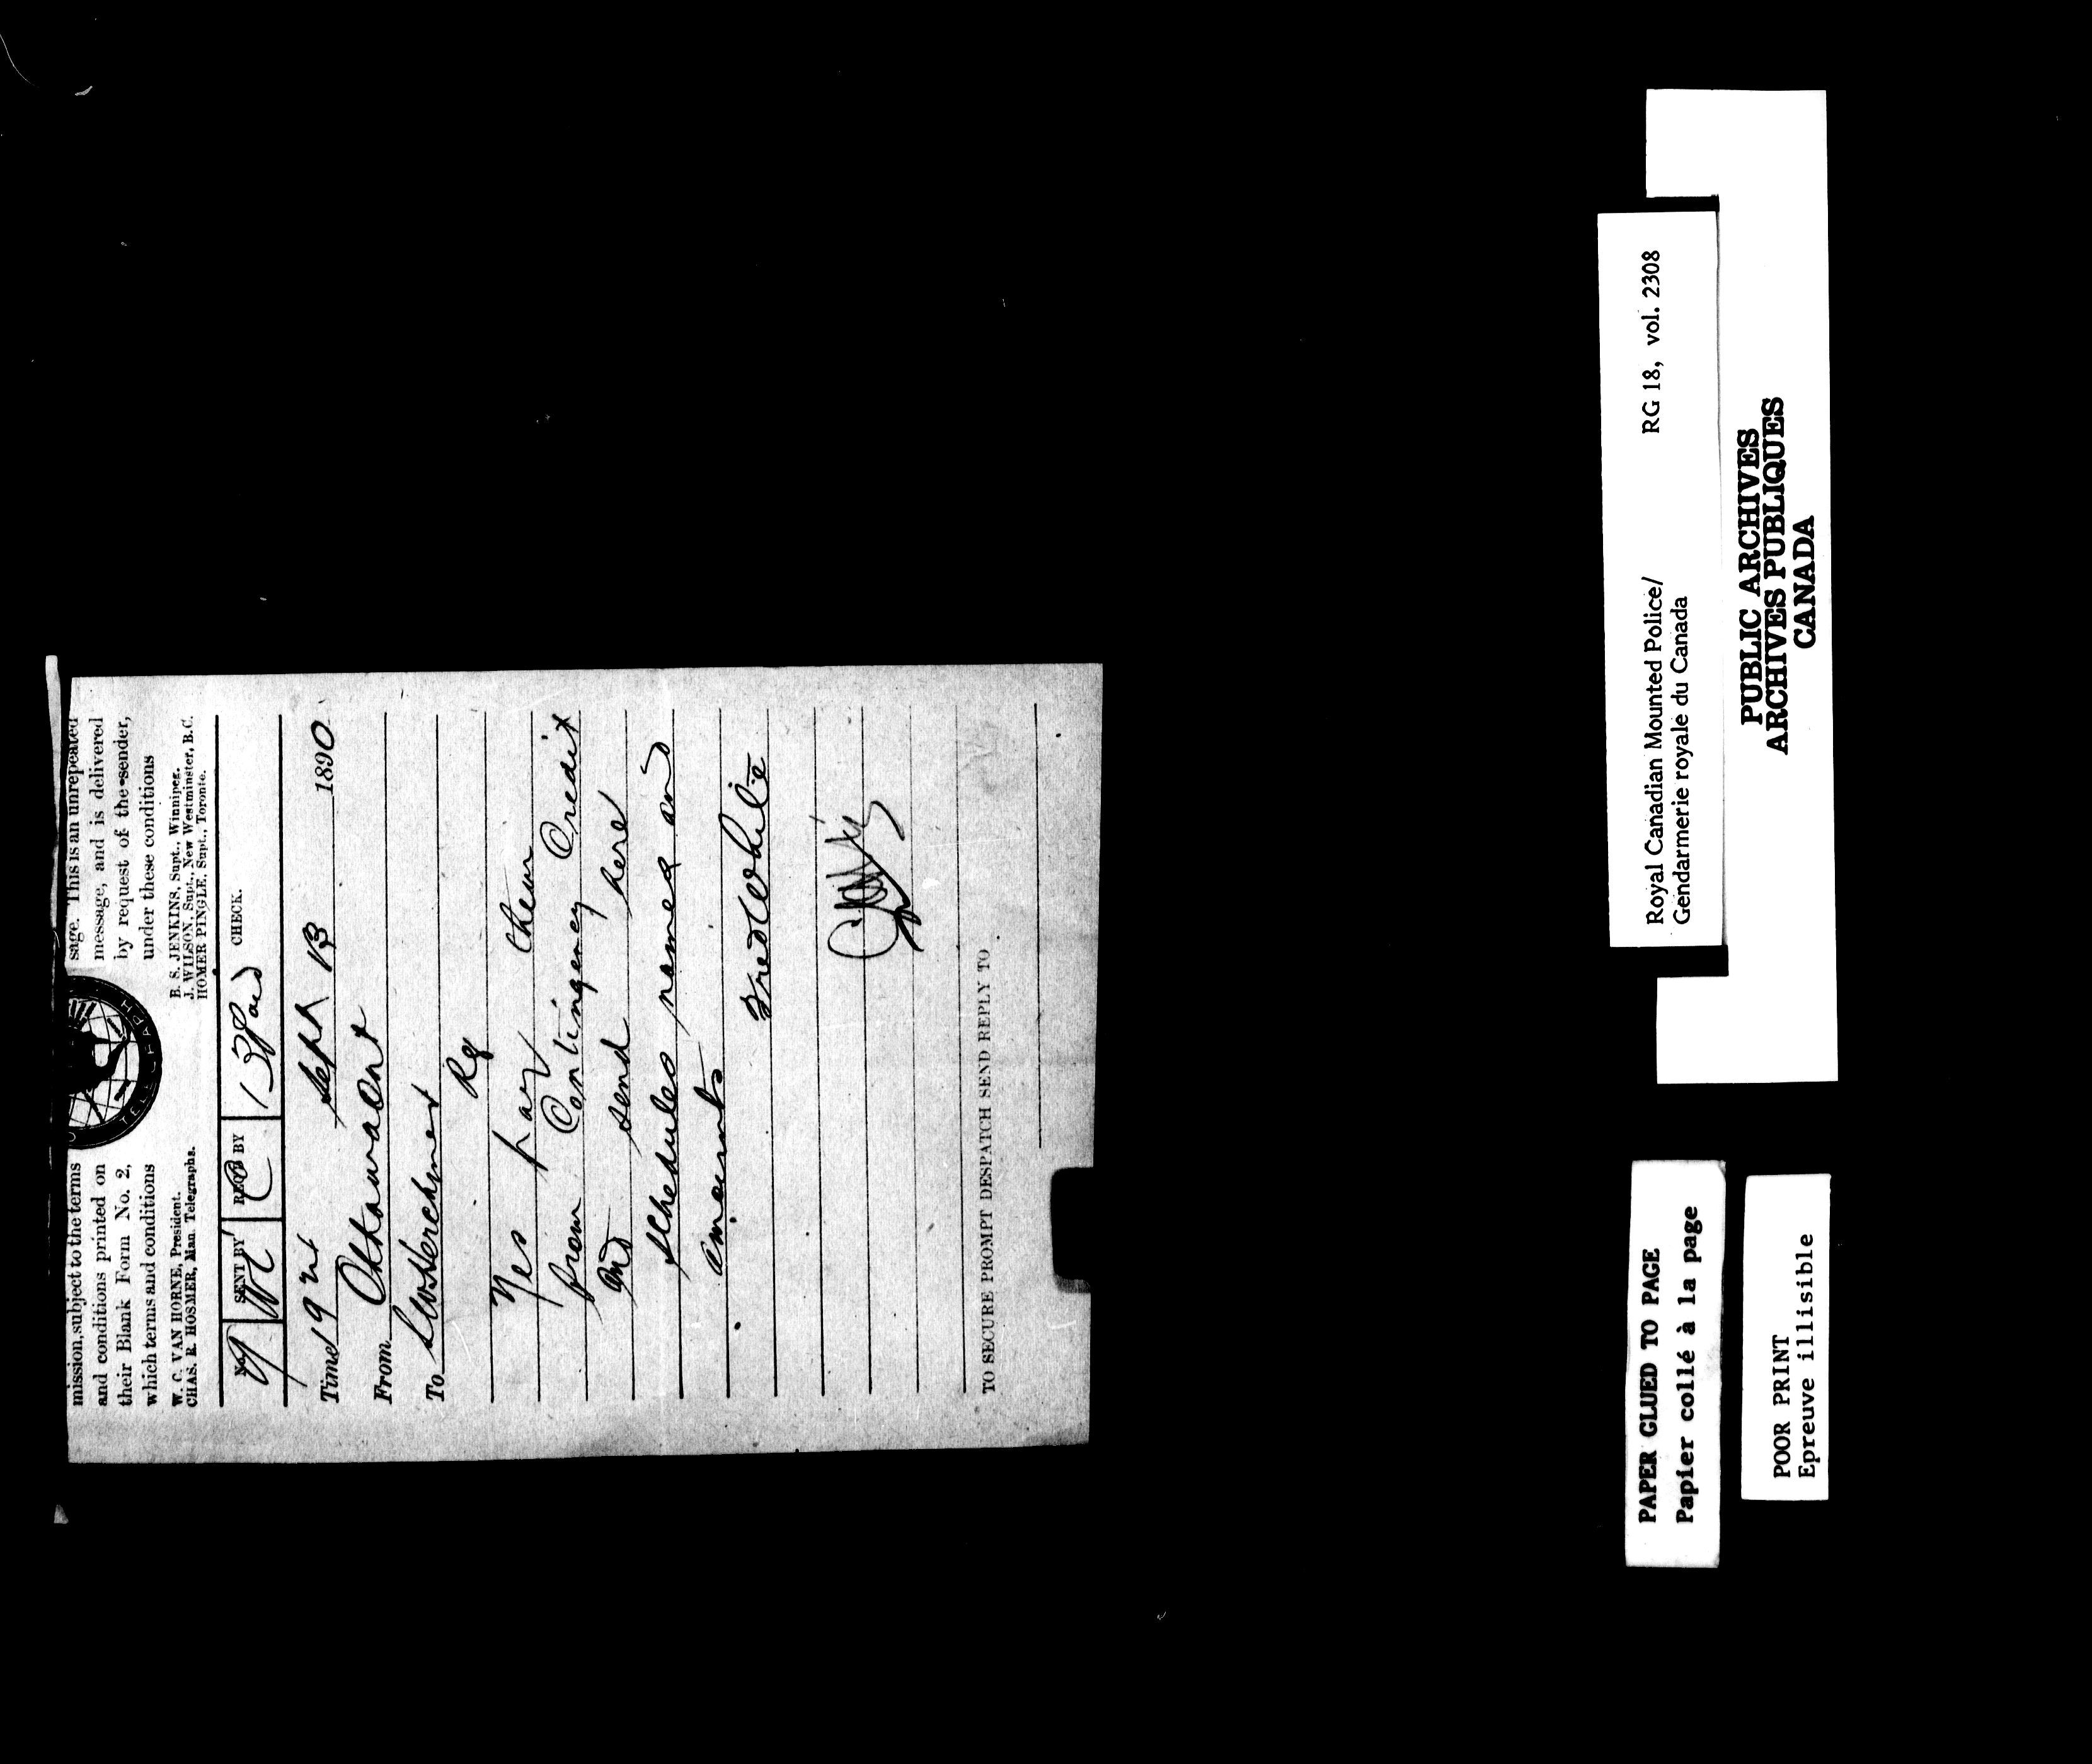 mission, subject to the terms
and conditions printed on
their Blank Form No. 2,
which terms and conditions
sage. This is an unrepeated
message, and is delivered
by request of the sender,
under these conditions
TELEGRAPH
W. C. VAN HORNE, President.
CHAS. R. HOSMER, Man. Telegraphs.
B. S. JENKINS, Supt., Winnipeg.
J. WILSON, Supt., New Westminster, B.C.
HOMER PINGLE, Supt., Toronto.
No. SENT BY REC'D BY CHECK.
13 Paid
Time 19 Sept 13 1890
From Ottawa Ont
To Herchmer
Rg
Yes pay them
from Contingency Credit
and send here
schedules names and
amounts
Fred White
TO SECURE PROMPT DESPATCH SEND REPLY TO
Royal Canadian Mounted Police/ RG 18, vol. 2308
Gendarmerie royale du Canada
PUBLIC ARCHIVES
ARCHIVES PUBLIQUES
CANADA
PAPER GLUED TO PAGE
Papier collé à la page
POOR PRINT
Epreuve illisible